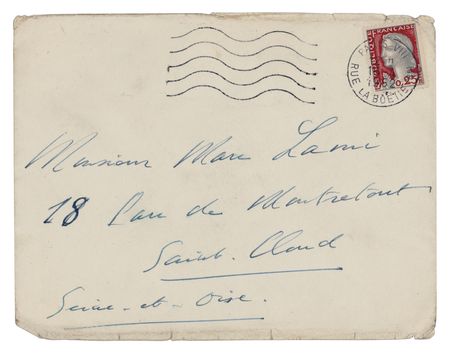 FRANÇAISE
0,25
PARIS VIII
RUE LA BOÉTIE
Monsieur Marc Lami
18 Parc de Montretout
Saint-Cloud
Seine-et-Oise.